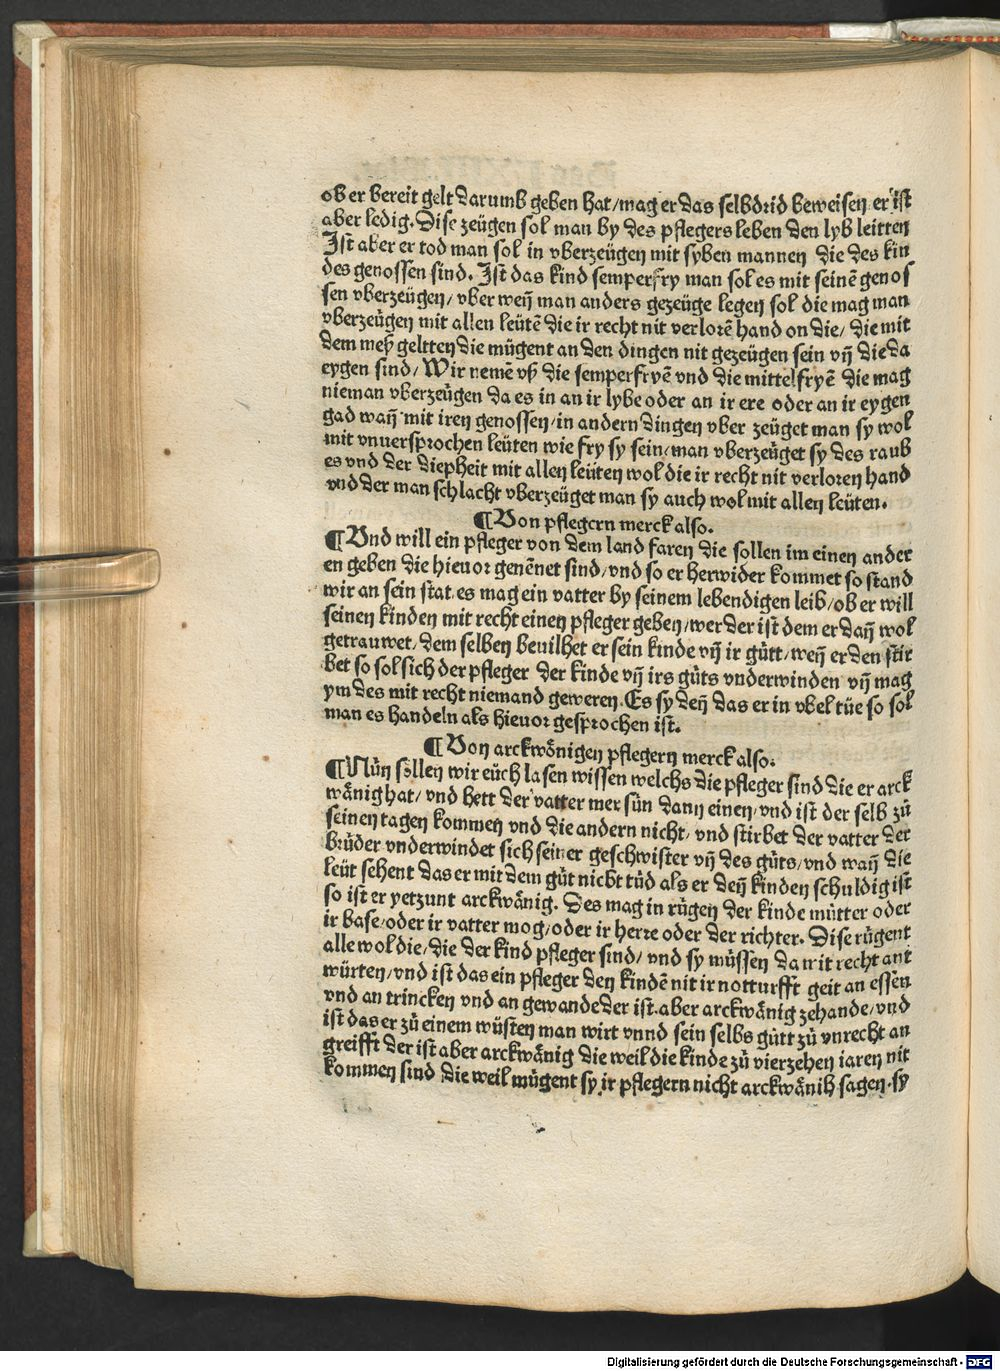 ob er bereit gelt darumb geben hat/mag er das selbdrid beweisen er ist
aber ledig. Dise zeügen sol man by des pflegers leben den lyb leitten
Ist aber er tod man sol in vberzeügen mit syben mannen die des kin
des genossen sind. Ist das kind semperfry man sol es mit seinē genos
sen vberzeügen/ vber weñ man anders gezeüge legen sol die mag man
vberzeügen mit allen leütē die ir recht nit verlorē hand on die/ die mit
dem meß geltten die mügent an den dingen nit gezeügen sein vñ die da
eygen sind/ Wir nemē vß die semperfryē vnd die mittelfryē die mag
nieman vberzeügen da es in an ir lybe oder an ir ere oder an ir eygen
gad wañ mit iren genossen/in andern dingen vber zeüget man sy wol
mit vnuersprochen leüten wie fry sy sein/man vberzeüget sy des raub
es vnd der diepheit mit allen leüten wol die ir recht nit verloren hand
vnd der man schlacht vberzeüget man sy auch wol mit allen leüten.
¶ Von pflegern merck also.
¶ Vnd will ein pfleger von dem land faren die sollen im einen ander
en geben die hieuor genēnet sind/vnd so er herwider kommet so stand
wir an sein stat es mag ein vatter by seinem lebendigen leib/ob er will
seinen kinden mit recht einen pfleger geben/wer der ist dem er dañ wol
getrauwet/dem selben beuilhet er sein kinde vñ ir gůtt/weñ er den stir
bet so sol sich der pfleger der kinde vñ irs gůts vnderwinden vñ mag
ym des mit recht niemand geweren Es sy deñ das er in vbel tüe so sol
man es handeln als hieuor gesprochen ist.
¶ Von arckwånigen pflegern merck also.
¶ Nůn sollen wir eüch lasen wissen welchs die pfleger sind die er arck
wånig hat/ vnd hett der vatter mer sün dann einen/vnd ist der selb zů
seinen tagen kommen vnd die andern nicht/ vnd stirbet der vatter der
brůder vnderwindet sich seiner geschwister vñ des gůts/vnd wañ die
leüt sehent das er mit dem gůt nicht tůd als er deñ kinden schuldig ist
so ist er yetzunt arckwånig. Des mag in rügen der kinde můtter oder
ir base/oder ir vatter mog/oder ir herre oder der richter. Dise rügent
alle wol die/die der kind pfleger sind/ vnd sy müssen da mit recht ant
würten/vnd ist das ein pfleger den kindē nit ir notturfft geit an essen
vnd an trincken vnd an gewande der ist aber arckwånig zehande/vnd
ist das er zů einem wüsten man wirt vnnd sein selbs gůtt zů vnrecht an
greifft der ist aber arckwånig die weil die kinde zů vierzehen iaren nit
kommen sind die weil mügent sy ir pflegern nicht arckwånih sagen. sy
Digitalisierung gefördert durch die Deutsche Forschungsgemeinschaft - DFG